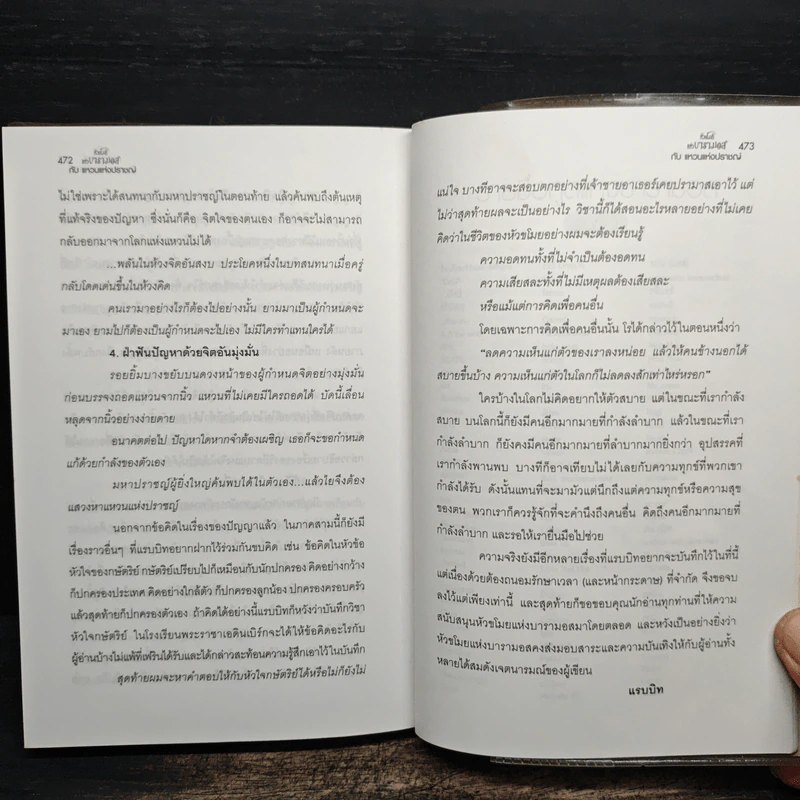 472
หัวขโมย
แห่งบารามอส
กับ แหวนแห่งปราชญ์
ไม่ใช่เพราะได้สนทนากับมหาปราชญ์ในตอนท้าย แล้วค้นพบถึงต้นเหตุ
ที่แท้จริงของปัญหา ซึ่งนั่นก็คือ จิตใจของตนเอง ก็อาจจะไม่สามารถ
กลับออกมาจากโลกแห่งแหวนไม่ได้
...พลันในห้วงจิตอันสงบ ประโยคหนึ่งในบทสนทนาเมื่อครู่
กลับโดดเด่นขึ้นในห้วงคิด
คนเรามาอย่างไรก็ต้องไปอย่างนั้น ยามมาเป็นผู้กำหนดจะ
มาเอง ยามไปก็ต้องเป็นผู้กำหนดจะไปเอง ไม่มีใครทำแทนใครได้
4. ฝ่าฟันปัญหาด้วยจิตอันมุ่งมั่น
รอยยิ้มบางขยับบนดวงหน้าของผู้กำหนดจิตอย่างมุ่งมั่น
ก่อนบรรจงถอดแหวนจากนิ้ว แหวนที่ไม่เคยมีใครถอดได้ บัดนี้เลื่อน
หลุดจากนิ้วอย่างง่ายดาย
อนาคตต่อไป ปัญหาใดหากจำต้องเผชิญ เธอก็จะขอกำหนด
แก้ด้วยกำลังของตัวเอง
มหาปราชญ์ผู้ยิ่งใหญ่ค้นพบได้ในตัวเอง...แล้วไยจึงต้อง
แสวงหาแหวนแห่งปราชญ์
นอกจากข้อคิดในเรื่องของปัญญาแล้ว ในภาคสามนี้ก็ยังมี
เรื่องราวอื่นๆ ที่แรบบิทอยากฝากไว้ร่วมกันขบคิด เช่น ข้อคิดในหัวข้อ
หัวใจของกษัตริย์ กษัตริย์เปรียบไปก็เหมือนกับนักปกครอง คิดอย่างกว้าง
ก็ปกครองประเทศ คิดอย่างใกล้ตัว ก็ปกครองลูกน้อง ปกครองครอบครัว
แล้วสุดท้ายก็ปกครองตัวเอง ถ้าคิดได้อย่างนี้แรบบิทก็หวังว่าบันทึกวิชา
หัวใจกษัตริย์ ในโรงเรียนพระราชาเอดินเบิร์กจะได้ให้ข้อคิดอะไรกับ
ผู้อ่านบ้างไม่แพ้ที่เฟรินได้รับและได้กล่าวสะท้อนความรู้สึกเอาไว้ในบันทึก
สุดท้ายผมจะหาคำตอบให้กับหัวใจกษัตริย์ได้หรือไม่ก็ยังไม่
หัวขโมย
แห่งบารามอส
กับ แหวนแห่งปราชญ์
473
แน่ใจ บางทีอาจจะสอบตกอย่างที่เจ้าชายอาเธอร์เคยปรามาสเอาไว้ แต่
ไม่ว่าสุดท้ายผลจะเป็นอย่างไร วิชานี้ก็ได้สอนอะไรหลายอย่างที่ไม่เคย
คิดว่าในชีวิตของหัวขโมยอย่างผมจะต้องเรียนรู้
ความอดทนทั้งที่ไม่จำเป็นต้องอดทน
ความเสียสละทั้งที่ไม่มีเหตุผลต้องเสียสละ
หรือแม้แต่การคิดเพื่อคนอื่น
โดยเฉพาะการคิดเพื่อคนอื่นนั้น โรได้กล่าวไว้ในตอนหนึ่งว่า
"ลดความเห็นแก่ตัวของเราลงหน่อย แล้วให้คนข้างนอกได้
สบายขึ้นบ้าง ความเห็นแก่ตัวในโลกก็ไม่ลดลงสักเท่าไหร่หรอก"
ใครบ้างในโลกไม่คิดอยากให้ตัวสบาย แต่ในขณะที่เรากำลัง
สบาย บนโลกนี้ก็ยังมีคนอีกมากมายที่กำลังลำบาก แล้วในขณะที่เรา
กำลังลำบาก ก็ยังคงมีคนอีกมากมายที่ลำบากมากยิ่งกว่า อุปสรรคที่
เรากำลังพานพบ บางทีก็อาจเทียบไม่ได้เลยกับความทุกข์ที่พวกเขา
กำลังได้รับ ดังนั้นแทนที่จะมามัวแต่นึกถึงแต่ความทุกข์หรือความสุข
ของตน พวกเราก็ควรรู้จักที่จะคำนึงถึงคนอื่น คิดถึงคนอีกมากมายที่
กำลังลำบาก และรอให้เรายื่นมือไปช่วย
ความจริงยังมีอีกหลายเรื่องที่แรบบิทอยากจะบันทึกไว้ในที่นี้
แต่เนื่องด้วยต้องถนอมรักษาเวลา (และหน้ากระดาษ) ที่จำกัด จึงขอจบ
ลงไว้แต่เพียงเท่านี้ และสุดท้ายก็ขอขอบคุณนักอ่านทุกท่านที่ให้ความ
สนับสนุนหัวขโมยแห่งบารามอสมาโดยตลอด และหวังเป็นอย่างยิ่งว่า
หัวขโมยแห่งบารามอสคงส่งมอบสาระและความบันเทิงให้กับผู้อ่านทั้ง
หลายได้สมดังเจตนารมณ์ของผู้เขียน
แรบบิท